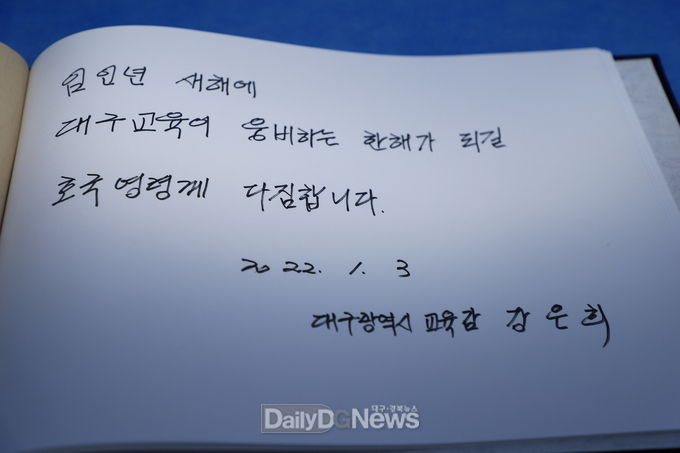 임인년 새해에
대구교육이 웅비하는 한해가 되길
호국영령께 다짐합니다.
2022. 1. 3
대구광역시 교육감 강은희
대구·경북뉴스
DailyDGNews